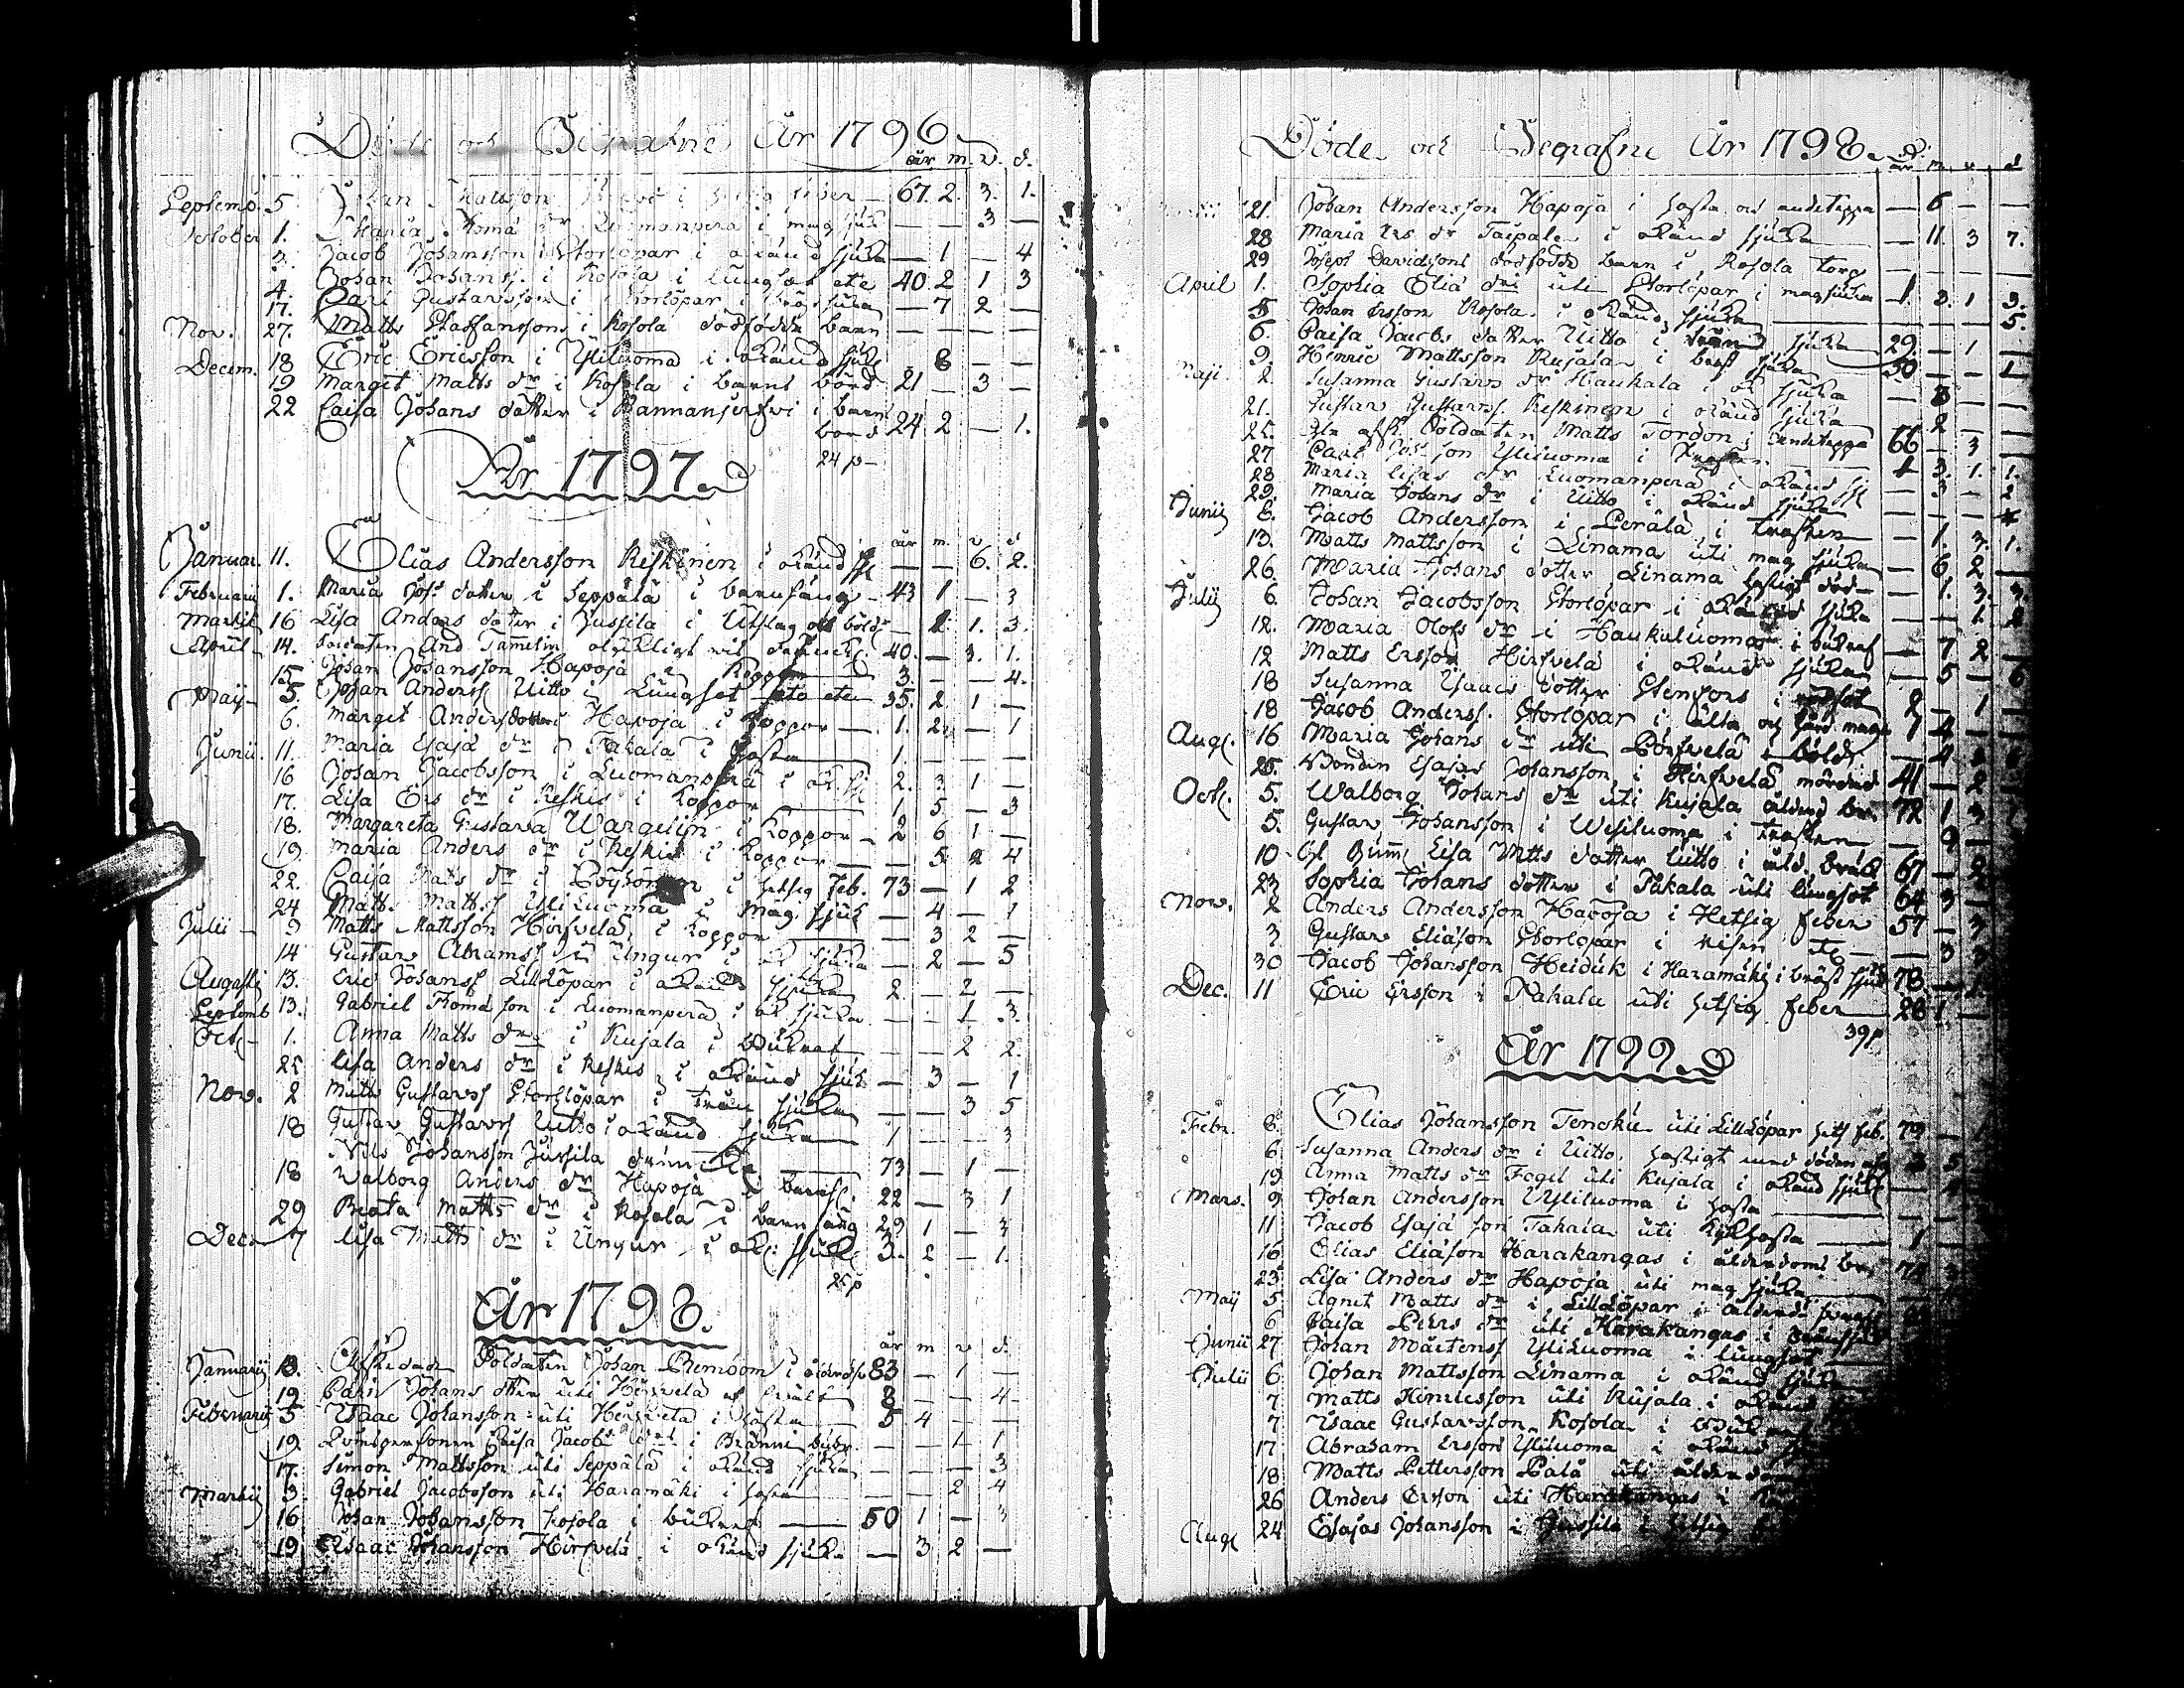 Döde och Begrafne År 1796
år m. v. d.
Septemb. 5 Johan Mattsson i hetsig feber 67. 2. 3. 1.
October 1. Maria Thoma dr Luomanperä i mag sjuk — — 3 —
3. Jacob Johansson i Storlöpar i okänd sjuka — 1 — 4
4. Johan Johanss. i Kosola i Lungsot etc 40 2 1 3
17. Carl Gustavsson i Storlöpar i sjuka — 7 2 —
Nov. 27. Matts Staffanssons i Kosola dödfödde barn — — — —
Decem. 18 Eric Ericsson i Yliluoma i okänd sjuk — 8 — —
19 Margit Matts dr i Kosola i barns börd 21 — 3 —
22 Caisa Johans dotter i Rannanjerfwi i barns
börd 24 2 — 1.
24 p —
År 1797.
år m. v. d
Januar. 11. Elias Andersson Keskinen i okänd sjk — — 6. 2.
Februarii 1. Maria Joh dotter i Seppälä i barnsäng 43 1 — 3
Martii 16 Lisa Anders dotter i Jussila i Utslag och böld — 2 1. 3.
April 14. Soldaten And Tammelin 40. — 3. 1.
15 Johan Johansson Hapoja Koppor 3. — — 4.
Maji 5. Johan Anderss Uitto i Lungsot etc 35. 2 1 —
6. Margit Anders dotter Hapoja i Koppor — 1. 2 — 1
Junii. 11. Maria Esaiä dr i Takala i Hosta 1. — — —
16 Johan Jacobsson i Luomanperä i ok. sjk 2. 3 1 —
17. Lisa Ers dr i Keskis i Koppor 1 5 — 3
18. Margareta Gustava Wargelijn i Koppor 2 6 1 —
19. Maria Anders dr i Keskis i Koppor — 5 2 4
22. Caisa Mats dr i i hetsig feb. 73 — 1 2
24 Matts Mattss Yliluoma i Mag sjuk — 4 — 1
Julii 9 Matts Mattsson Hirsvelä i Koppor — 3 2 —
14 Gustav Abramss i Ungur i ok sjuka — 2 — 5
Augusti 13. Eric Johanss Lilllöpar i okänd sjuka 2. — 2 —
Septemb 13. Gabriel Thomä son i Luomanperä i ok sjuka — — 1 3.
Oct. 1. Anna Matts dr i Kujala i Bukref — — 2 2.
25 Lisa Anders dr i Keskis i okänd sjuk — 3 — 1
Nov. 2 Matts Gustavss Storlöpar i sjuka — — 3 5
18 Gustav Gustavss Uitto i okänd sjuka 1 — — 3
Nils Johansson Jussila 73 — 1 —
18 Walborg Anders dr Hapoja i barns. 22 — 3 1
29 Beata Matts dr i Kosola i barn säng 29 1 — 3
Dec. 7 Lisa Matts dr i Ungur i ok: sjuk 3. 2 — 1.
25 p
År 1798.
år m v d.
Januarij 13. Afskedade Soldaten Johan 83 — 1 —
19 Johans dtter uti Hirsvelä 8 — — 4
Februarii 5 Isaac Johansson uti Hirsvelä i Hosta 5 4 — —
19. Caisa Jacobs — — 1 1
17. Simon Mattsson uti Seppälä i okänd sjuka — — — 3
Martij 3. Gabriel Jacobsson uti Haramäki i hosta — — 2 4
16 Johan Johansson Kosola i bukref 50 1 — 3
19 Isaac Johansson Hirsvelä i okänd sjuka — 3 2 —
Döde och Begrafne År 1798.
år m. v. d
21. Johan Andersson Hapoja i hosta och andetäppa — 6 — —
28 Maria Ers dr Taipale i okänd sjuka — 11. 3 7.
29 Joseph Davidsons dödfödde barn i Kosola torp — — — —
April 1. Sophia Eliä dr uti Storlöpar i magsjuka 1. 2. 1 3.
5 Johan Ersson Kosola i okänd sjuka — — — 5.
6. Caisa Jacobs dotter Uitto i sjuka 29. — 1 —
9. Henric Mattsson Kujala i bröst sjuka 50 — — 1
Maji 2. Susanna Gustavs dr Haukala i ok sjuka — 8 — —
21. Gustav Gustavss. Keskinen i okänd sjuka — 2 — —
25. Soldaten Matts Tordon i andetäppa 66 — 3 —
27 Carl Joh son Yliluoma i 1 3. 1. 1.
28 Maria Elias dr Luomanperä i okänd sjk — 3 — 2
29. Maria Johans dr i Uitto i okänd sjuka — — — 4
Junij 8. Jacob Andersson i Perälä i trasken — 1. 3. 1.
13. Matts Mattsson i Linama uti mag sjuka — 6 2 —
26 Maria Johans dotter Linama hastigt död — 1. 3. 3.
Julij 6. Johan Jacobsson Storlöpar i okänd sjuka — — 1 2
12. Maria Olofs dr i Haukuluoma i bukref — 7 2 —
12 Matts Ersson Hirsvelä i okänd sjuka — 5 — 6
18 Susanna Isaacs dotter Stenfors i 2 — 1 —
18 Jacob Anderss. Storlöpar i ålta och hård mage 1 4 — —
Aug. 16 Maria Johans dr uti i böld — 4 2
25. Bonden Esajas Johansson i Hirsvelä mördad 41 — 2
Oct. 5. Walborg Johans dr uti Kujala ålderd. br. 72 1 3.
5. Gustav Johansson i Wesiluoma i trasken — 9 —
10 Lisa Matts dotter Uitto i åld. bräck 67 — 2
23 Sophia Johans dotter i Takala uti lungsot 64 3 —
Nov. 2 Anders Andersson Hapoja i Hetsig feber 57 — 3
3 Gustav Eliäson Storlöpar i — 3 3
30 Jacob Johansson Heiduk i Haramäki i bröst sjuk 73 — 1.
Dec. 11 Eric Ersson i Takala uti hetsig feber 28 1 —
39 p
År 1799.
Febr. 6. Elias Johansson Tenoku uti Lilllöpar hets feb. 79 —
6 Susanna Anders dr i Uitto, hastigt med döden 3 5
19 Anna Matts dr Fogel uti Kujala i okänd sjuk —
Mars. 9 Johan Andersson Yliluoma i hosta —
11 Jacob Esaiä son Takala uti Kikhosta — 1 —
16 Elias Eliäson Harakangas i ålderdoms br. 74
23 Lisa Anders dr Hapoja uti mag sjuka
Maij 5 Agnet Matts dr i Lilllöpar i
6 Caisa Piers dr uti Harakangas i
Junii 27 Johan Mårtenss Yliluoma i lungsot
Julii 6 Johan Mattsson Linama i okänd sjuka
7 Matts Hinricsson uti Kujala i okänd
7 Isaac Gustavsson Kosola i
17 Abraham Ersson Yliluoma i okänd
18 Matts Pettersson Palå uti
26 Anders Ersson uti Harakangas i
Aug 24 Esajas Johansson i Jussila i hetsig